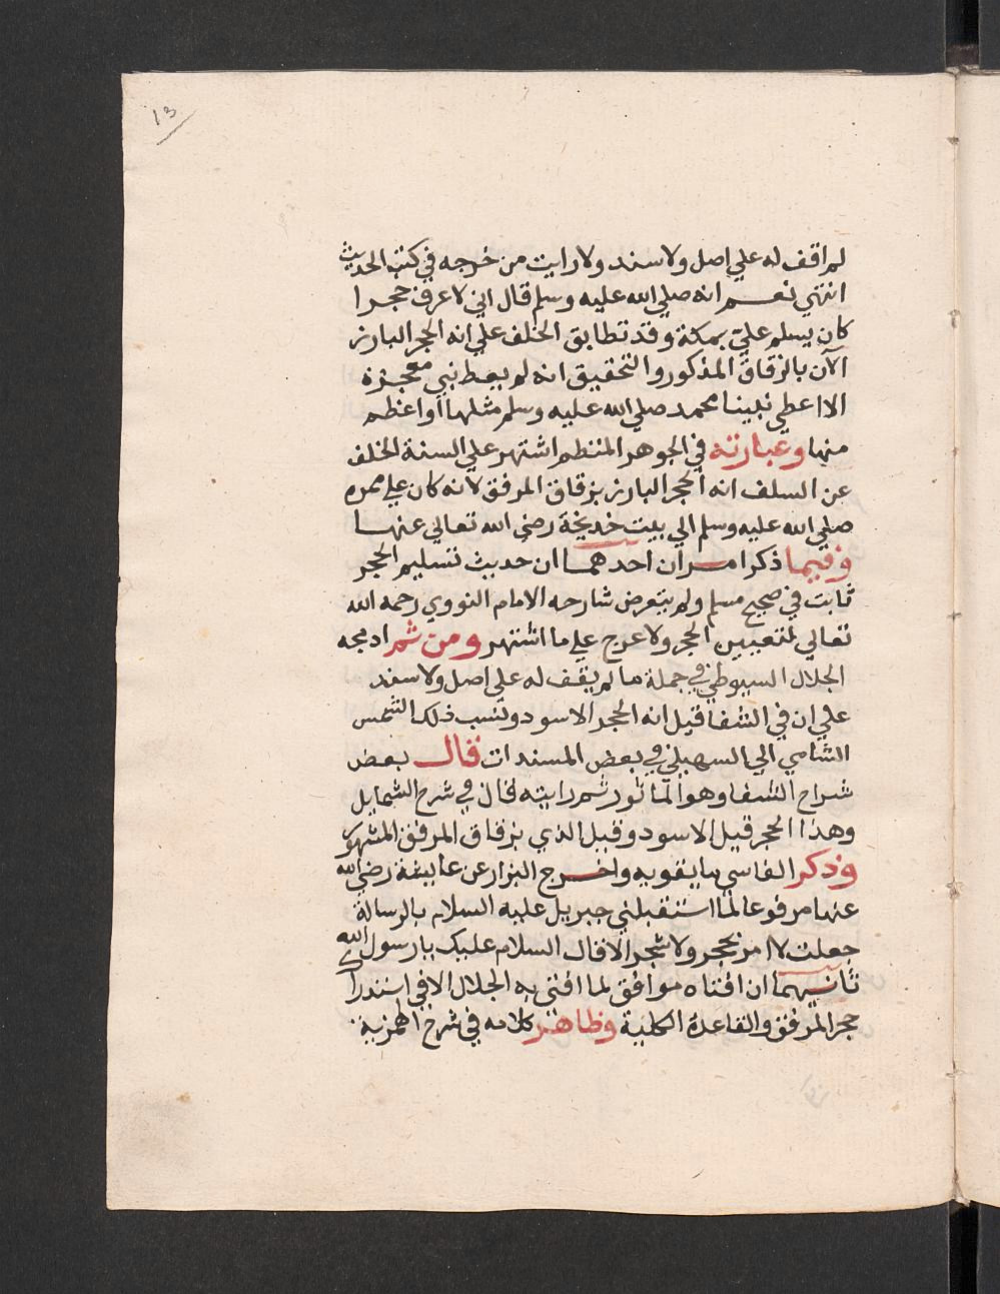 13
لم اقف له علي اصل ولا سند ولا رايت من خرجه في كتب الحديث
انتهي نعم انه صلي الله عليه وسلم قال اني لاعرف حجرا
كان يسلم علي بمكة وقد تطابق الخلف علي انه الحجر البارز
الآن بالزقاق المذكور والتحقيق انه لم يعط نبي معجزة
الا اعطي نبينا محمد صلي الله عليه وسلم مثلها او اعظم
منها وعبارته في الجوهر المنظم اشتهر علي السنة الخلف
عن السلف انه الحجر البارز بزقاق المرفق لانه كان علي ممره
صلي الله عليه وسلم الي بيت خديجة رضي الله تعالي عنها
وفيما ذكر امران احدهما ان حديث تسليم الحجر
ثابت في صحيح مسلم ولم يتعرض شارحه الامام النووي رحمه الله
تعالي لتعيين الحجر ولا عرج علي ما اشتهر ومن ثم ادمجه
الجلال السيوطي في جملة ما لم يقف له علي اصل ولا سند
علي ان في الشفا قيل انه الحجر الاسود ونسب ذلك الشمس
الشامي الي السهيلي في بعض المسندات قال بعض
شراح الشفا وهو المأثور ثم رايته قال في شرح الشمايل
وهذا الحجر قيل الاسود وقيل الذي بزقاق المرفق المشهور
وذكر الفاسي ما يقويه واخرج البزار عن عايشة رضي الله
عنها مرفوعا لما استقبلني جبريل عليه السلام بالرسالة
جعلت لا امر بحجر ولا شجر الا قال السلام عليك يا رسول الله
ثانيهما ان افتاه موافق لما افتي به الجلال الا في استدراك
حجر المرفق والقاعدة الكلية وظاهر كلامه في شرح الهمزية